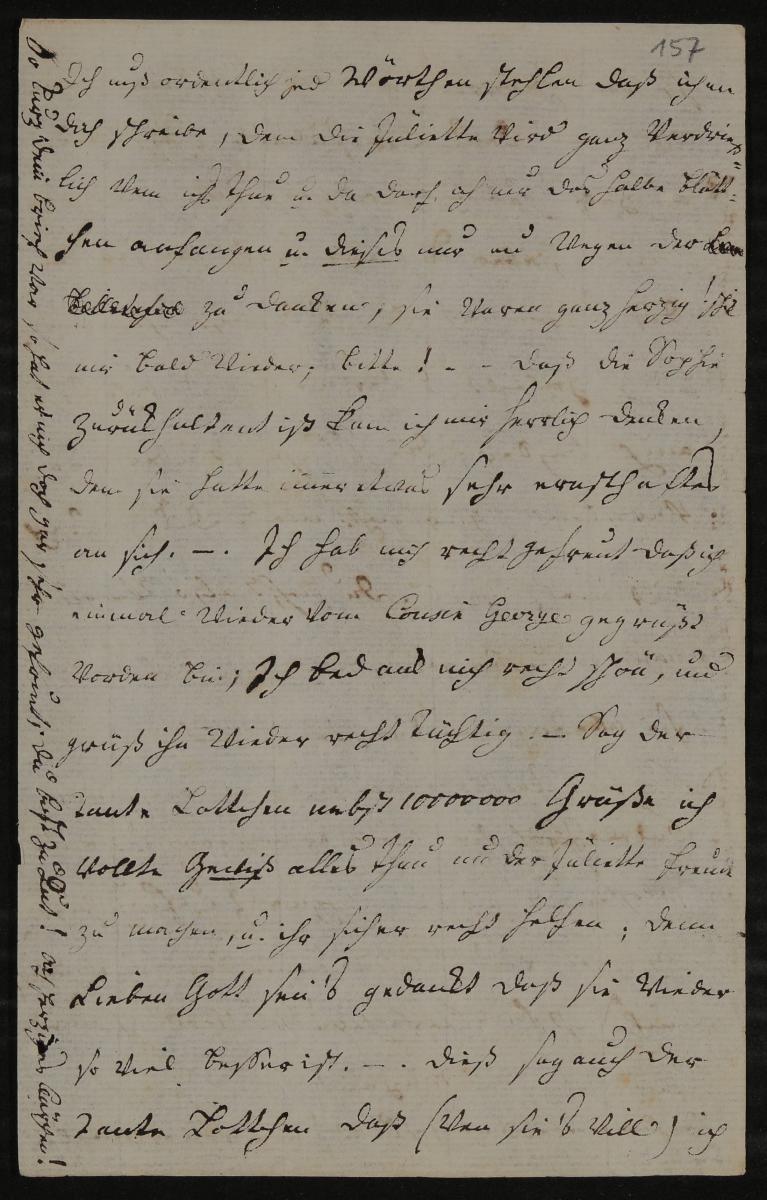 157
Ich muß ordentlich jed Wörthen stehlen daß ich an
dich schreibe, den die Juliette wird ganz Verdrieß=
lich wen ichs thue u. da darf ich nur das halbe blätt=
chen anfangen u. dieses nur um wegen der
zu danken, sie waren ganz herzig!
mir bald wieder, bitte! - - daß die Sophie
zurükhaltent ist kan ich mir herrlich denken,
den sie hatte immer etwas sehr ernsthaftes
an sich. —. Ich hab mich recht gefreut daß ich
einmal wieder vom Cousin George gegrüßt
worden bin; Ich bedank mich recht schön, und
grüß ihn wieder recht tüchtig. — Sag der
Tante Lottchen nebst 10000000 Grüße ich
wollte Gewiß alles thun um der Juliette freude
zu machen, u. ihr sicher recht helfen; denn
Lieben Gott sei's gedankt daß sie wieder
so viel besser ist. —. dieß sag auch der
Tante Lottchen daß (wen sie's will) ich
So kurz dein brief war, so hat er mich doch gar sehr gefreut; du